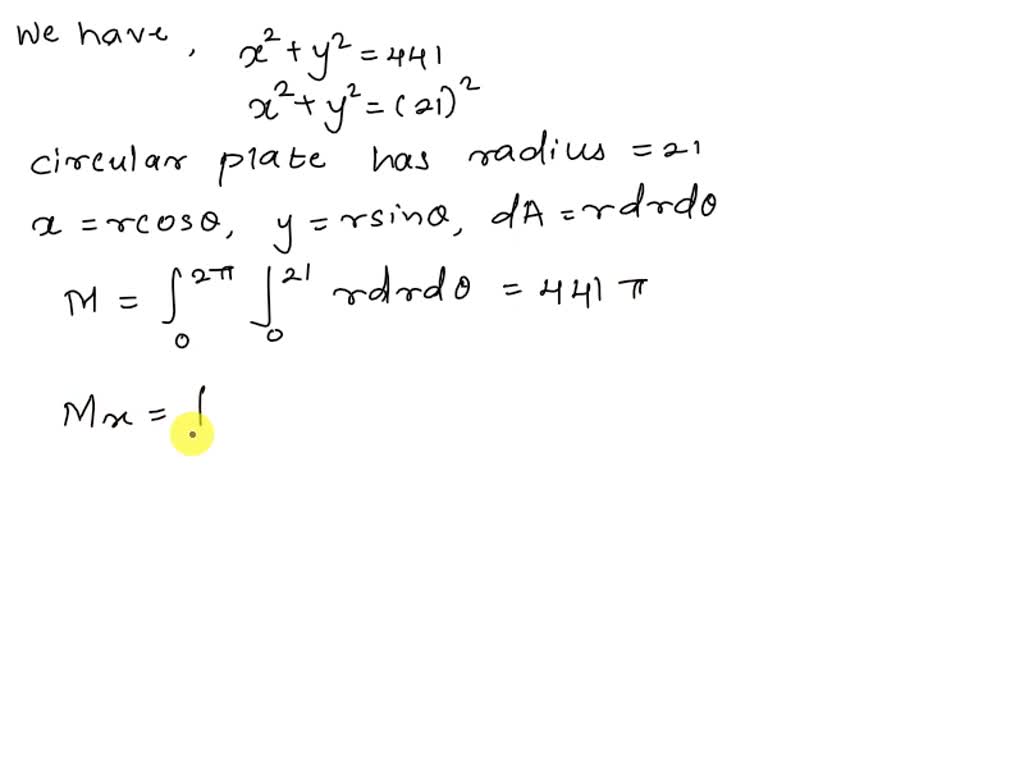 We have, x² + y² = 441
x² + y² = (21)²
circular plate has radius = 21
x = rcosθ, y = rsinθ, dA = rdrdθ
M = ∫₀^2π ∫₀^21 rdrdθ = 441 π
Mx = ∫